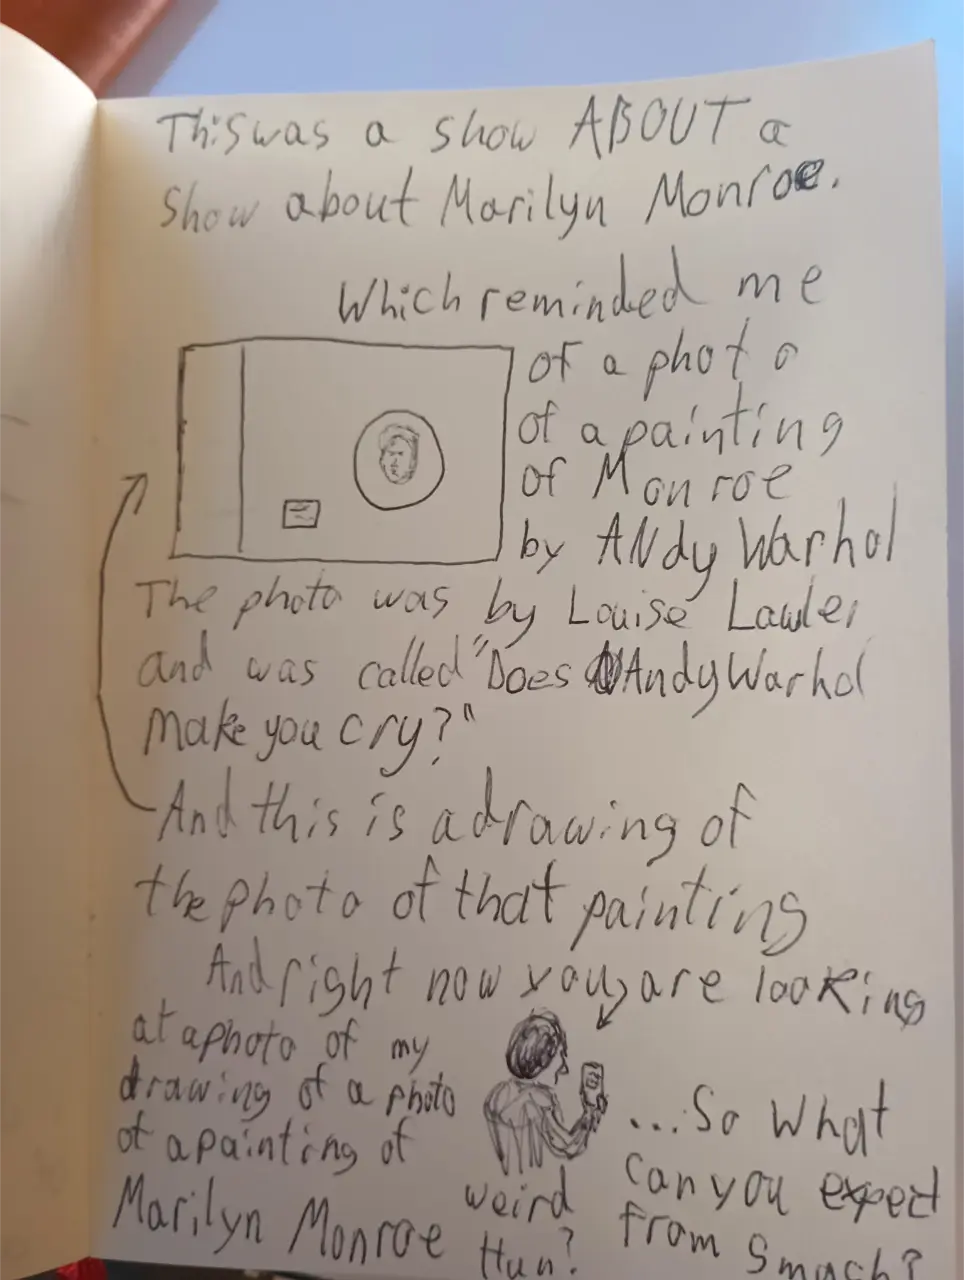 This was a show ABOUT a
show about Marilyn Monroe.
Which reminded me
of a photo
of a painting
of Monroe
by ANdy Warhol
The photo was by Louise Lawler
and was called "Does Andy Warhol
make you cry?"
And this is a drawing of
the photo of that painting
And right now you are looking
at a photo of my
drawing of a photo
of a painting of
Marilyn Monroe
weird
Hun?
...So what
can you expect
from Smash?